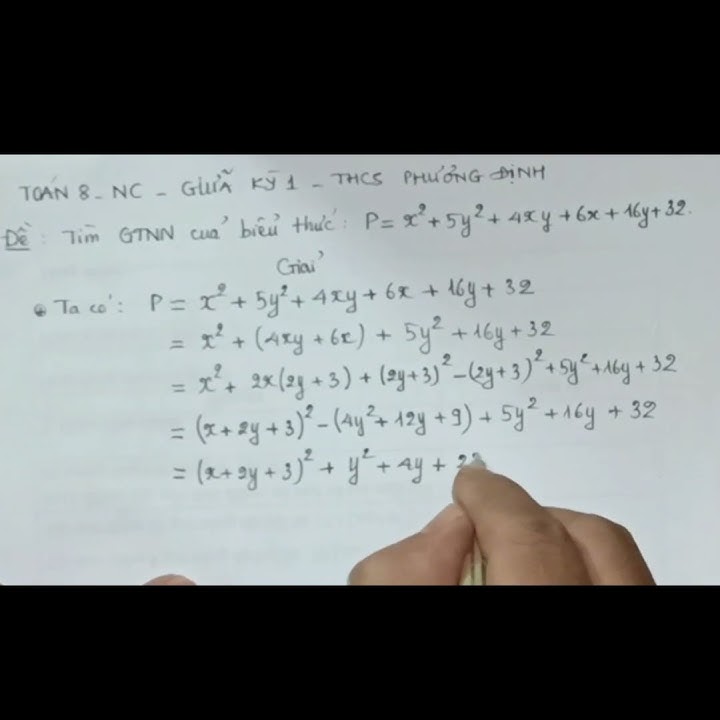 TOÁN 8 - NC - GIỮA KỲ 1 - THCS PHƯỞNG ĐỊNH
Đề: Tìm GTNN của biểu thức: P = x² + 5y² + 4xy + 6x + 16y + 32.
Giải
• Ta có: P = x² + 5y² + 4xy + 6x + 16y + 32
= x² + (4xy + 6x) + 5y² + 16y + 32
= x² + 2x(2y + 3) + (2y+3)² - (2y+3)² + 5y² + 16y + 32
= (x + 2y + 3)² - (4y² + 12y + 9) + 5y² + 16y + 32
= (x + 2y + 3)² + y² + 4y +